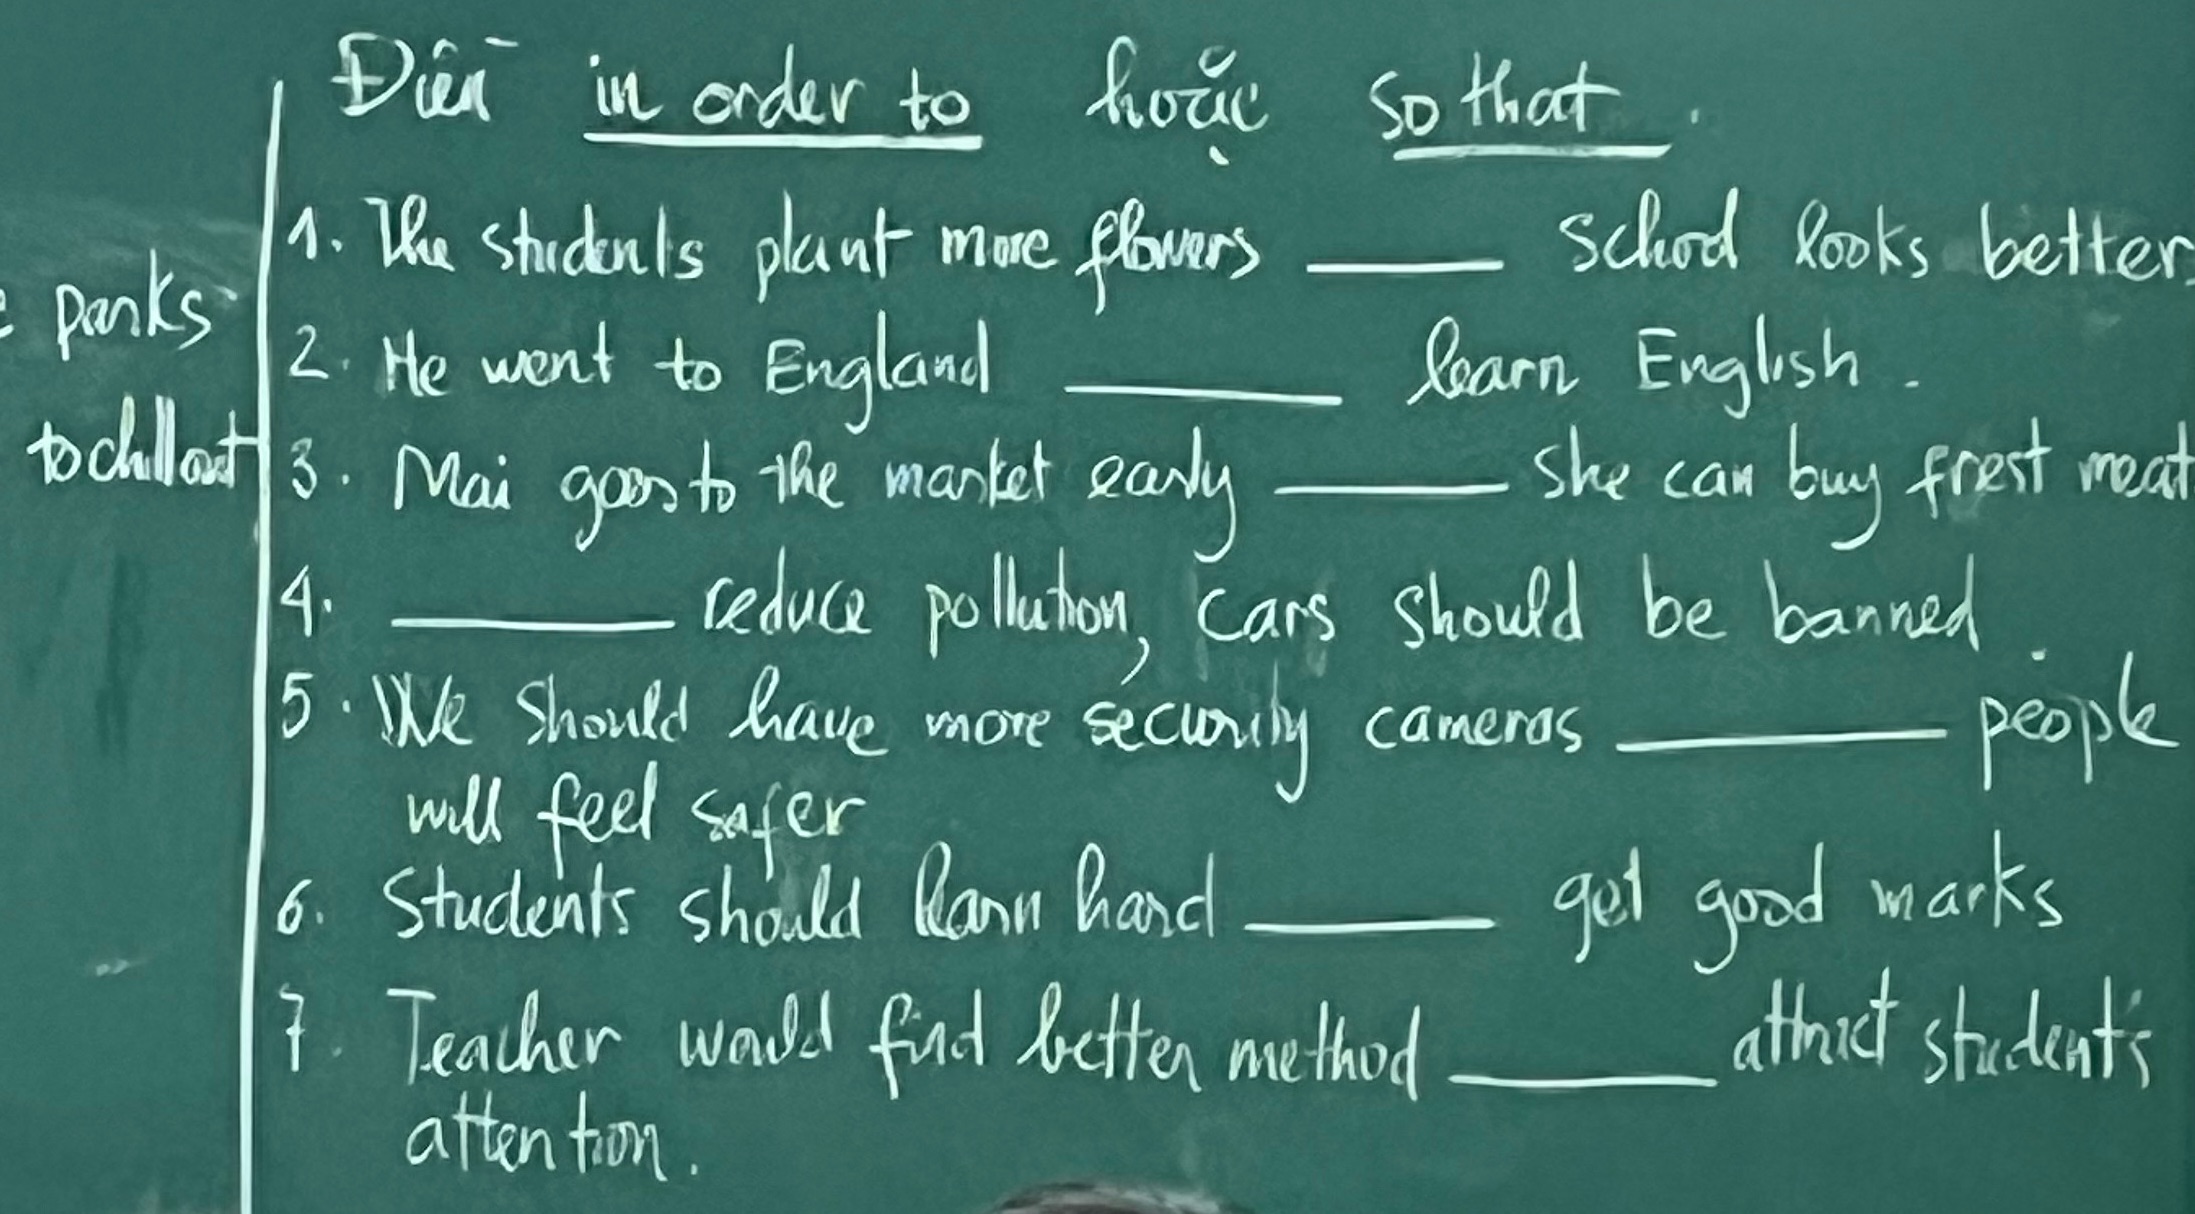 Điền in order to hoặc so that.
1. The students plant more flowers ___ school looks better
2. He went to England ___ learn English.
3. Mai goes to the market early ___ she can buy frest meat
4. ___ reduce pollution, cars should be banned.
5. We should have more security cameras ___ people
will feel safer
6. Students should learn hard ___ get good marks
7. Teacher would find better method ___ attract student's
attention.
parks
to chill out